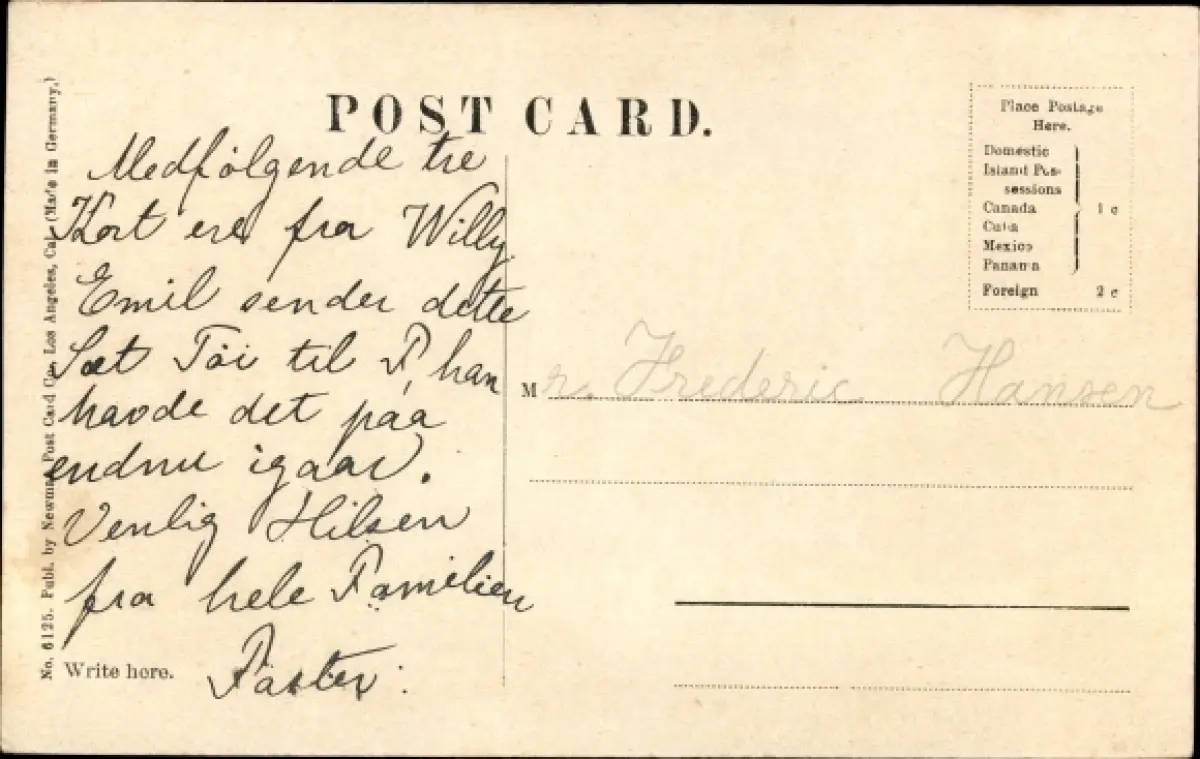 POST CARD.
No. 6125. Publ. by Newman Post Card Co., Los Angeles, Cal. (Made in Germany.)
Medfølgende tre
Kort ere fra Willy
Emil sender dette
Sæt Töi til F, han
havde det paa
endnu igaar.
Venlig Hilsen
fra hele Familien
Faster.
Write here.
Place Postage
Here.
Domestic
Island Pos-
sessions
Canada
Cuba
Mexico
Panama
1 c
Foreign 2 c
Mr. Frederic Hansen